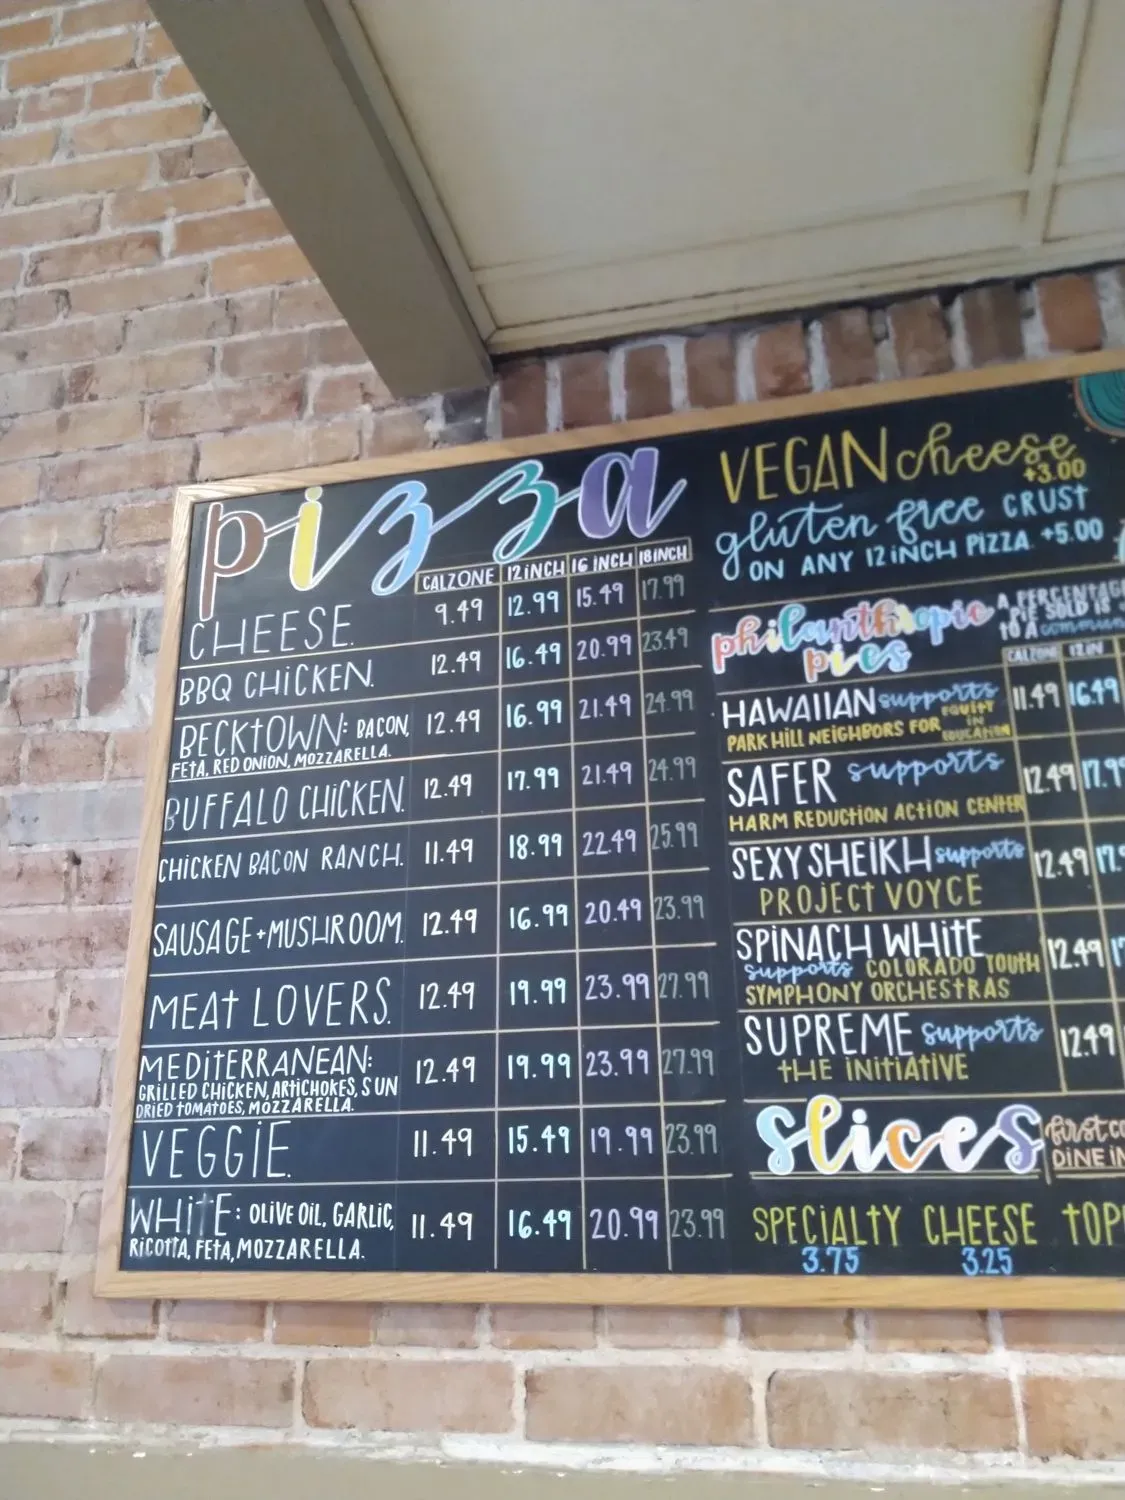 pizza
CALZONE 12 INCH 16 INCH 18 INCH
CHEESE. 9.49 12.99 15.49 17.99
BBQ CHICKEN. 12.49 16.49 20.99 23.49
BECKTOWN: BACON, 12.49 16.99 21.49 24.99
FETA, RED ONION, MOZZARELLA.
BUFFALO CHICKEN. 12.49 17.99 21.49 24.99
CHICKEN BACON RANCH. 11.49 18.99 22.49 25.99
SAUSAGE + MUSHROOM. 12.49 16.99 20.49 23.99
MEAT LOVERS. 12.49 19.99 23.99 27.99
MEDITERRANEAN: 12.49 19.99 23.99 27.99
GRILLED CHICKEN, ARTICHOKES, SUN
DRIED TOMATOES, MOZZARELLA.
VEGGIE. 11.49 15.49 19.99 23.99
WHITE: OLIVE OIL, GARLIC, 11.49 16.49 20.99 23.99
RICOTTA, FETA, MOZZARELLA.
VEGAN cheese
+3.00
gluten free CRUST
ON ANY 12 INCH PIZZA +5.00
philanthropic
pies
A PERCENTAGE
PIE SOLD IS
TO A
CALZONE 12 IN
HAWAIIAN supports 11.49 16.49
PARK HILL NEIGHBORS FOR EQUITY
IN
EDUCATION
SAFER supports 12.49
HARM REDUCTION ACTION CENTER
SEXY SHEIKH supports 12.49
PROJECT VOYCE
SPINACH WHITE 12.49
supports COLORADO YOUTH
SYMPHONY ORCHESTRAS
SUPREME supports 12.49
THE INITIATIVE
slices
first
DINE IN
SPECIALTY CHEESE
3.75 3.25